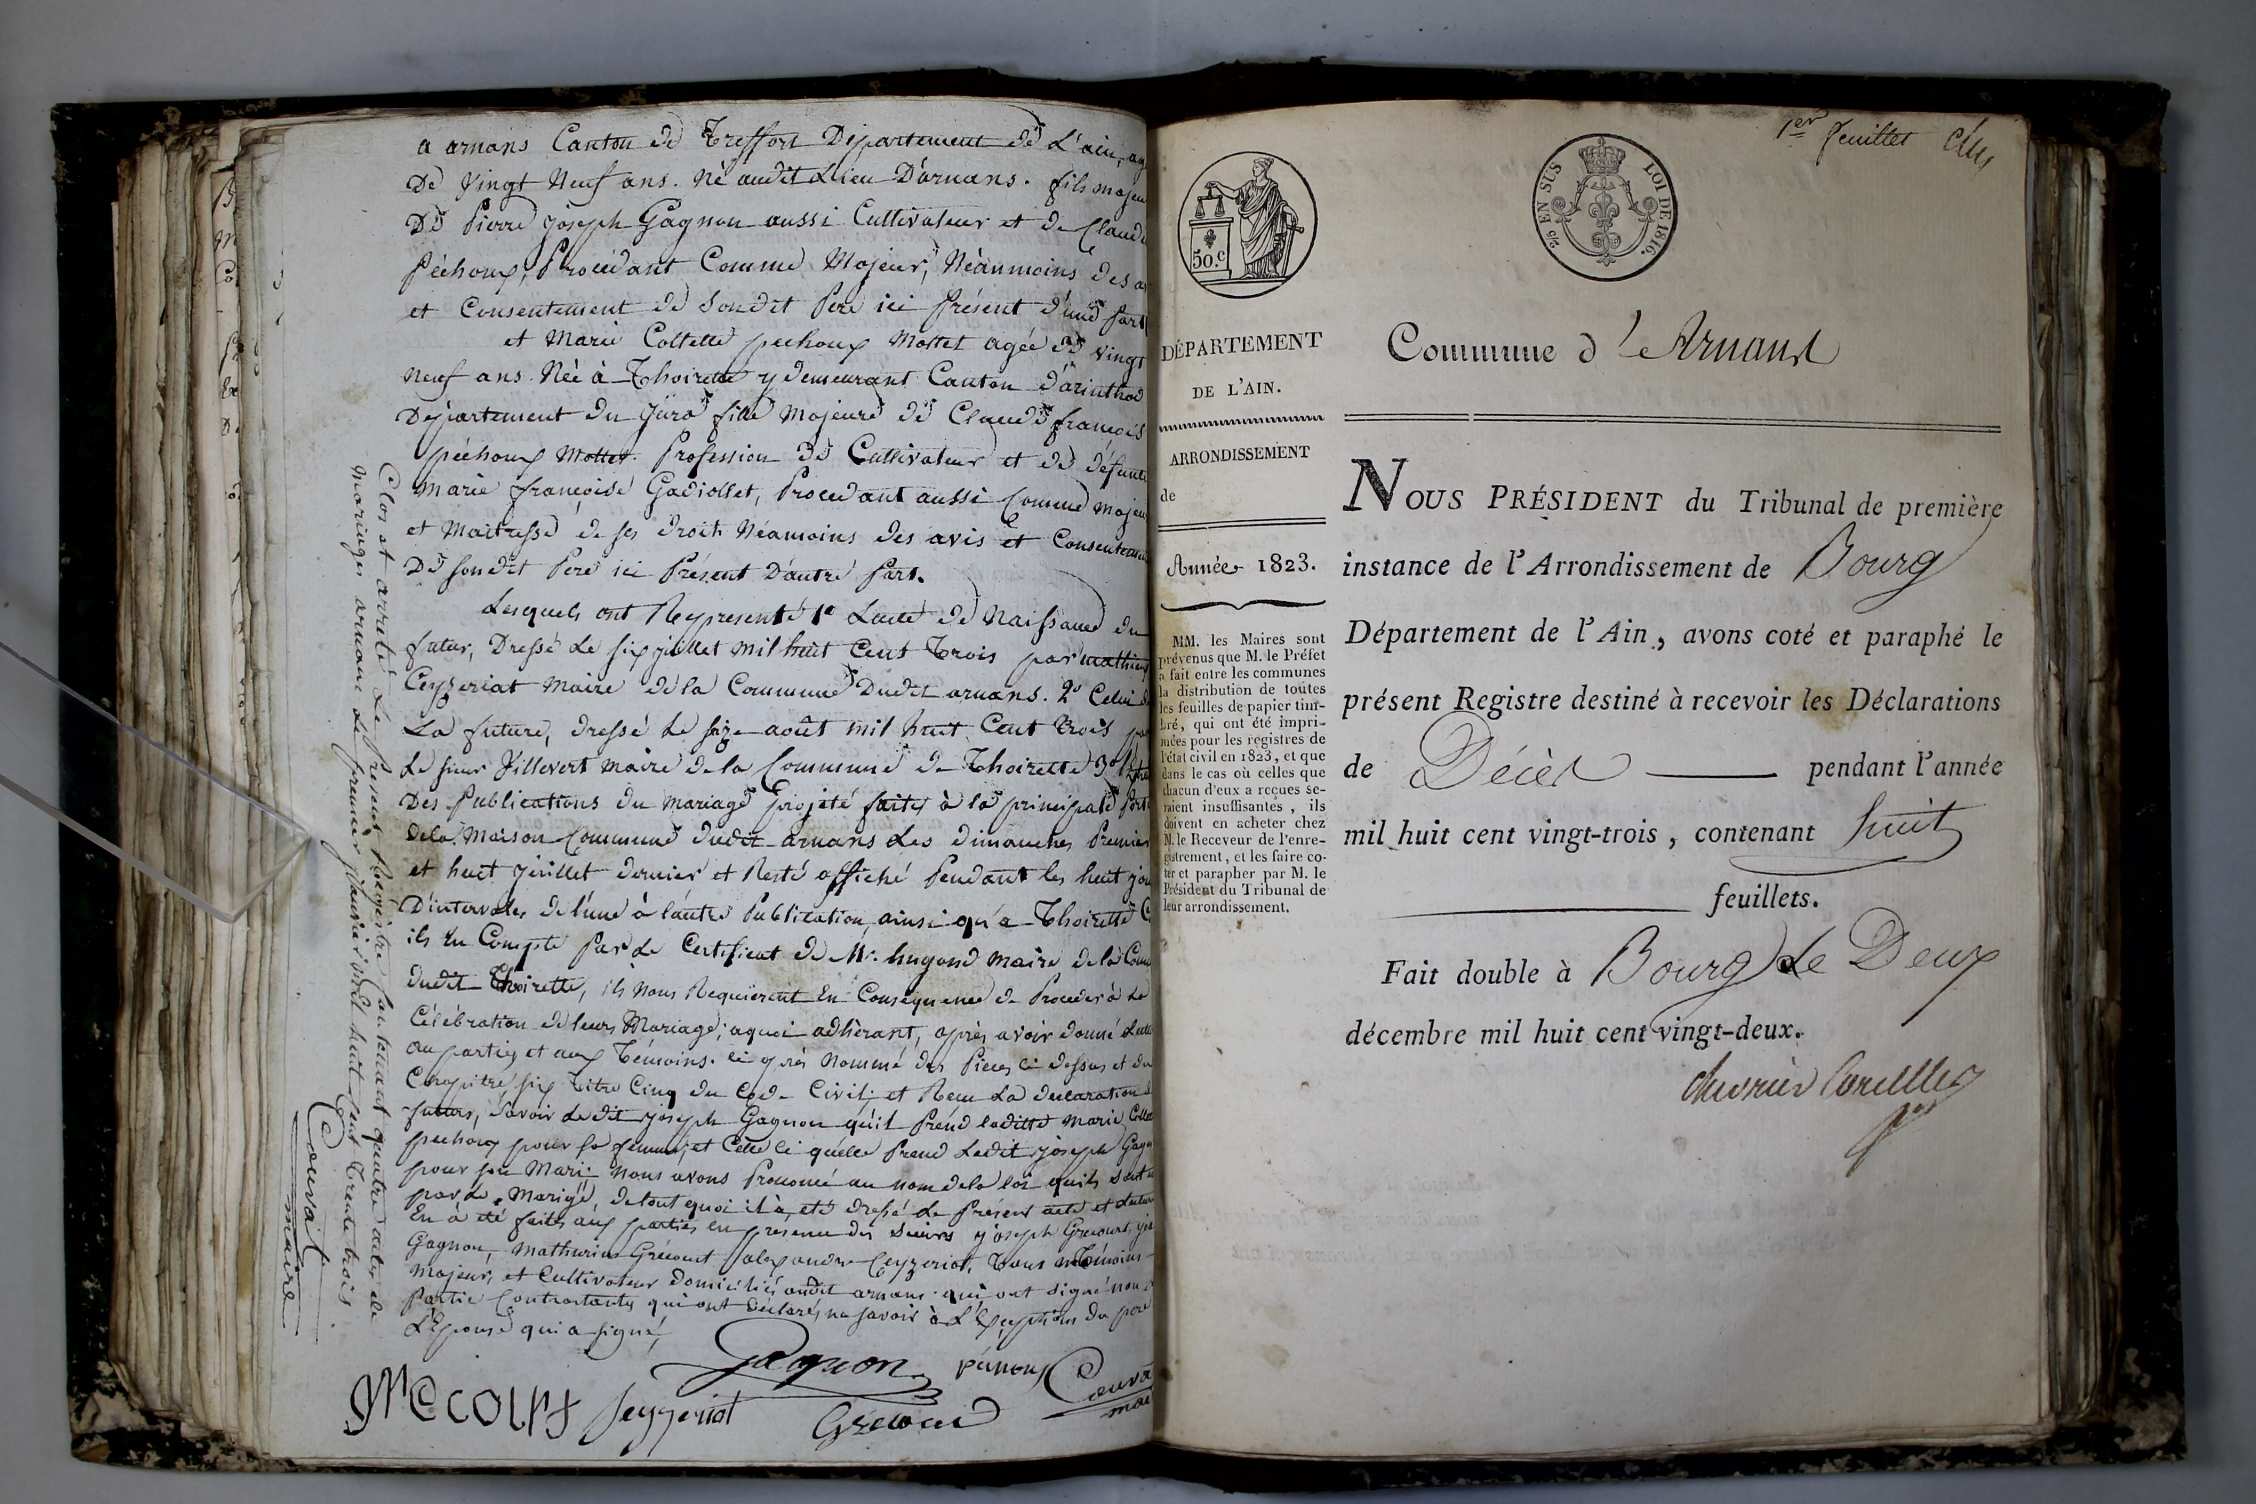 a arnans Canton de Treffort Département de L'ain, ag
De Vingt Neuf ans. Né audit Lieu D'arnans. fils majeur
De Pierre joseph Gagnon aussi Cultivateur et de Claud
Péchoux, Procédant Comme Majeur, Néanmoins des a
et Consentement de Sondit Pere ici Présent d'une part
et Marie Collette pechoux Mottet agée de Vingt
Neuf ans. Née à Thoirette y demeurant Canton d'arinthod
Département du Jura fille Majeure de Claude françois
péchoux Mottet. Profession de Cultivateur et de défunte
Marie françoise Gadiollet, Procedant aussi Comme majeu
et Maitresse de ses droits Néamoins des avis et Consentem
De Sondit Pere ici Présent D'autre Part.
Lesquels ont Représenté 1º Lacte de Naissance du
futur, Dressé Le six juillet mil huit Cent Trois par mathieu
Ceyzeriat Maire de la Commune Dudit arnans. 2º Celui d
La future, dressé Le seize août mil huit Cent Trois pa
Le sieur Villevert Maire de la Commune de Thoirette 3º
Des Publications du Mariage projeté faites à la principale Port
de la Maison Commune dudit arnans Les dimanches Premier
et huit juillet dernier et Resté affiché Pendant les huit jou
D'intervales de l'une à l'autre Publication, ainsi qu'a Thoirette C
ils en Compte Par Le Certificat de Mr. hugond Maire de la Com
dudit Thoirette, ils nous Requièrent En Conséquence de Proceder à La
Célébration de leurs Mariage; aquoi adhérant, après avoir donné Lect
au parties et aux Témoins. ci après Nommé des Pieces ci dessus et du
Chapitre six Titre Cinq du Code Civil, et Recu La declaration d
futurs, Savoir Ledit joseph Gagnon qu'il Prend laditte Marie Collet
pechoux pour sa femme, et Celle ci quelle Prend Ledit joseph Gagn
pour son Mari; Nous avons Prononcé au nom de la loi quils sont u
par Le Mariage, de tout quoi il à été dressé Le Présent acte et Lectur
En à été faites aux parties en presence des Sieurs joseph Grécourt, 
Gagnon, Mathurin Grécourt alexandre Ceyzeriat, Tous Témoins
Majeur, et Cultivateur domiciliés audit arnans qui ont signé non 
Partie Contractantes qui ont Déclarés ne savoir à L'Exception du pere
L'Epouse qui a signé,
Gagnon péchoux Couvat
mai
Seyzeriat Grécourt
Clos et arrêté Le Present Registre Contenant quatre actes de
Mariages arnans Le premier Janvier mil huit Cent Trente trois
Couvat
maire
1er feuillet
50.c
2/10 EN SUS LOI DE 1816.
DÉPARTEMENT
DE L'AIN.
ARRONDISSEMENT
de
Année 1823.
MM. les Maires sont
prévenus que M. le Préfet
a fait entre les communes
la distribution de toutes
les feuilles de papier tim-
bré, qui ont été impri-
mées pour les registres de
l'état civil en 1823, et que
dans le cas où celles que
chacun d'eux a reçues se-
raient insuffisantes, ils
doivent en acheter chez
M. le Receveur de l'enre-
gistrement, et les faire co-
ter et parapher par M. le
Président du Tribunal de
leur arrondissement.
Commune d'Arnans
NOUS PRÉSIDENT du Tribunal de première
instance de l'Arrondissement de Bourg
Département de l'Ain, avons coté et paraphé le
présent Registre destiné à recevoir les Déclarations
de Décès pendant l'année
mil huit cent vingt-trois, contenant huit
feuillets.
Fait double à Bourg le Deux
décembre mil huit cent vingt-deux.